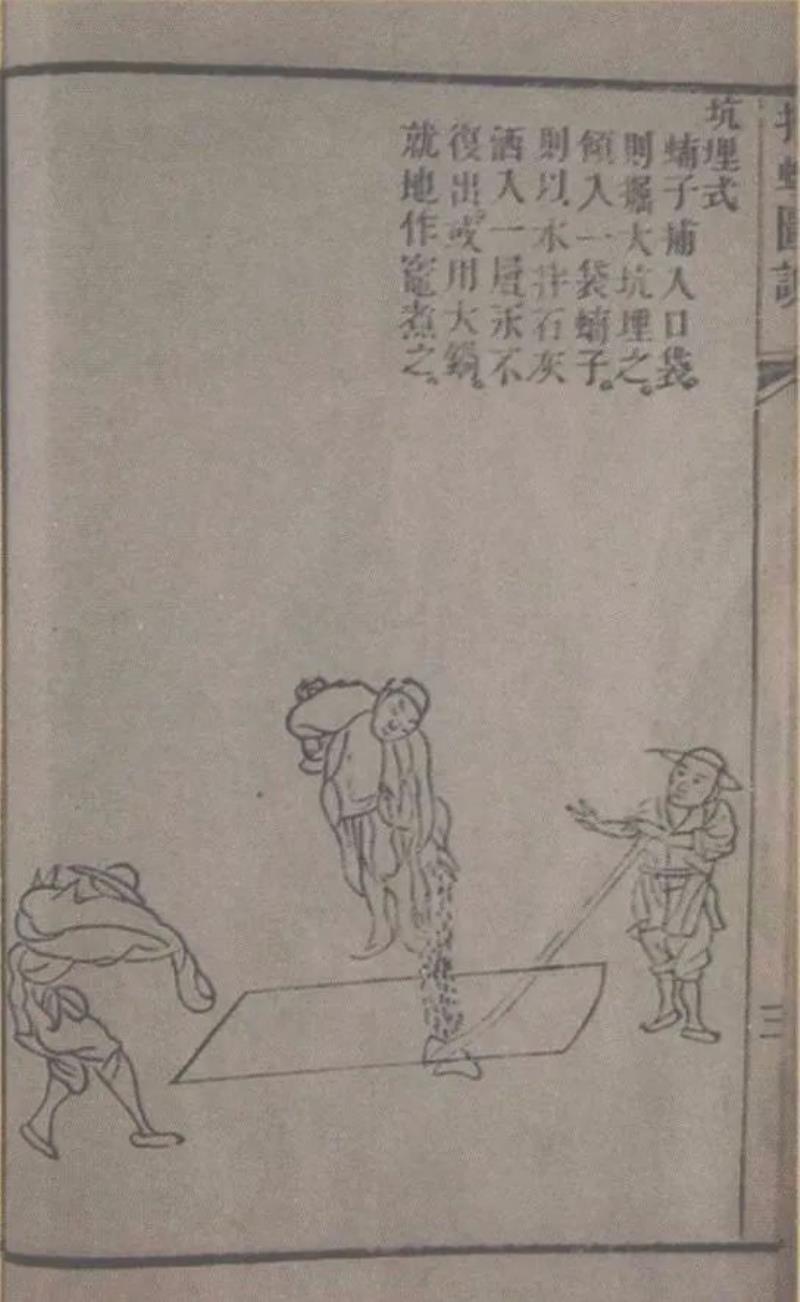 坑埋式
蝻子捕入口袋。
則掘大坑埋之。
傾入一袋蝻子。
則以水拌石灰
洒入一層永不
復出。或用大鍋。
就地作竈煮之。
圖說
三